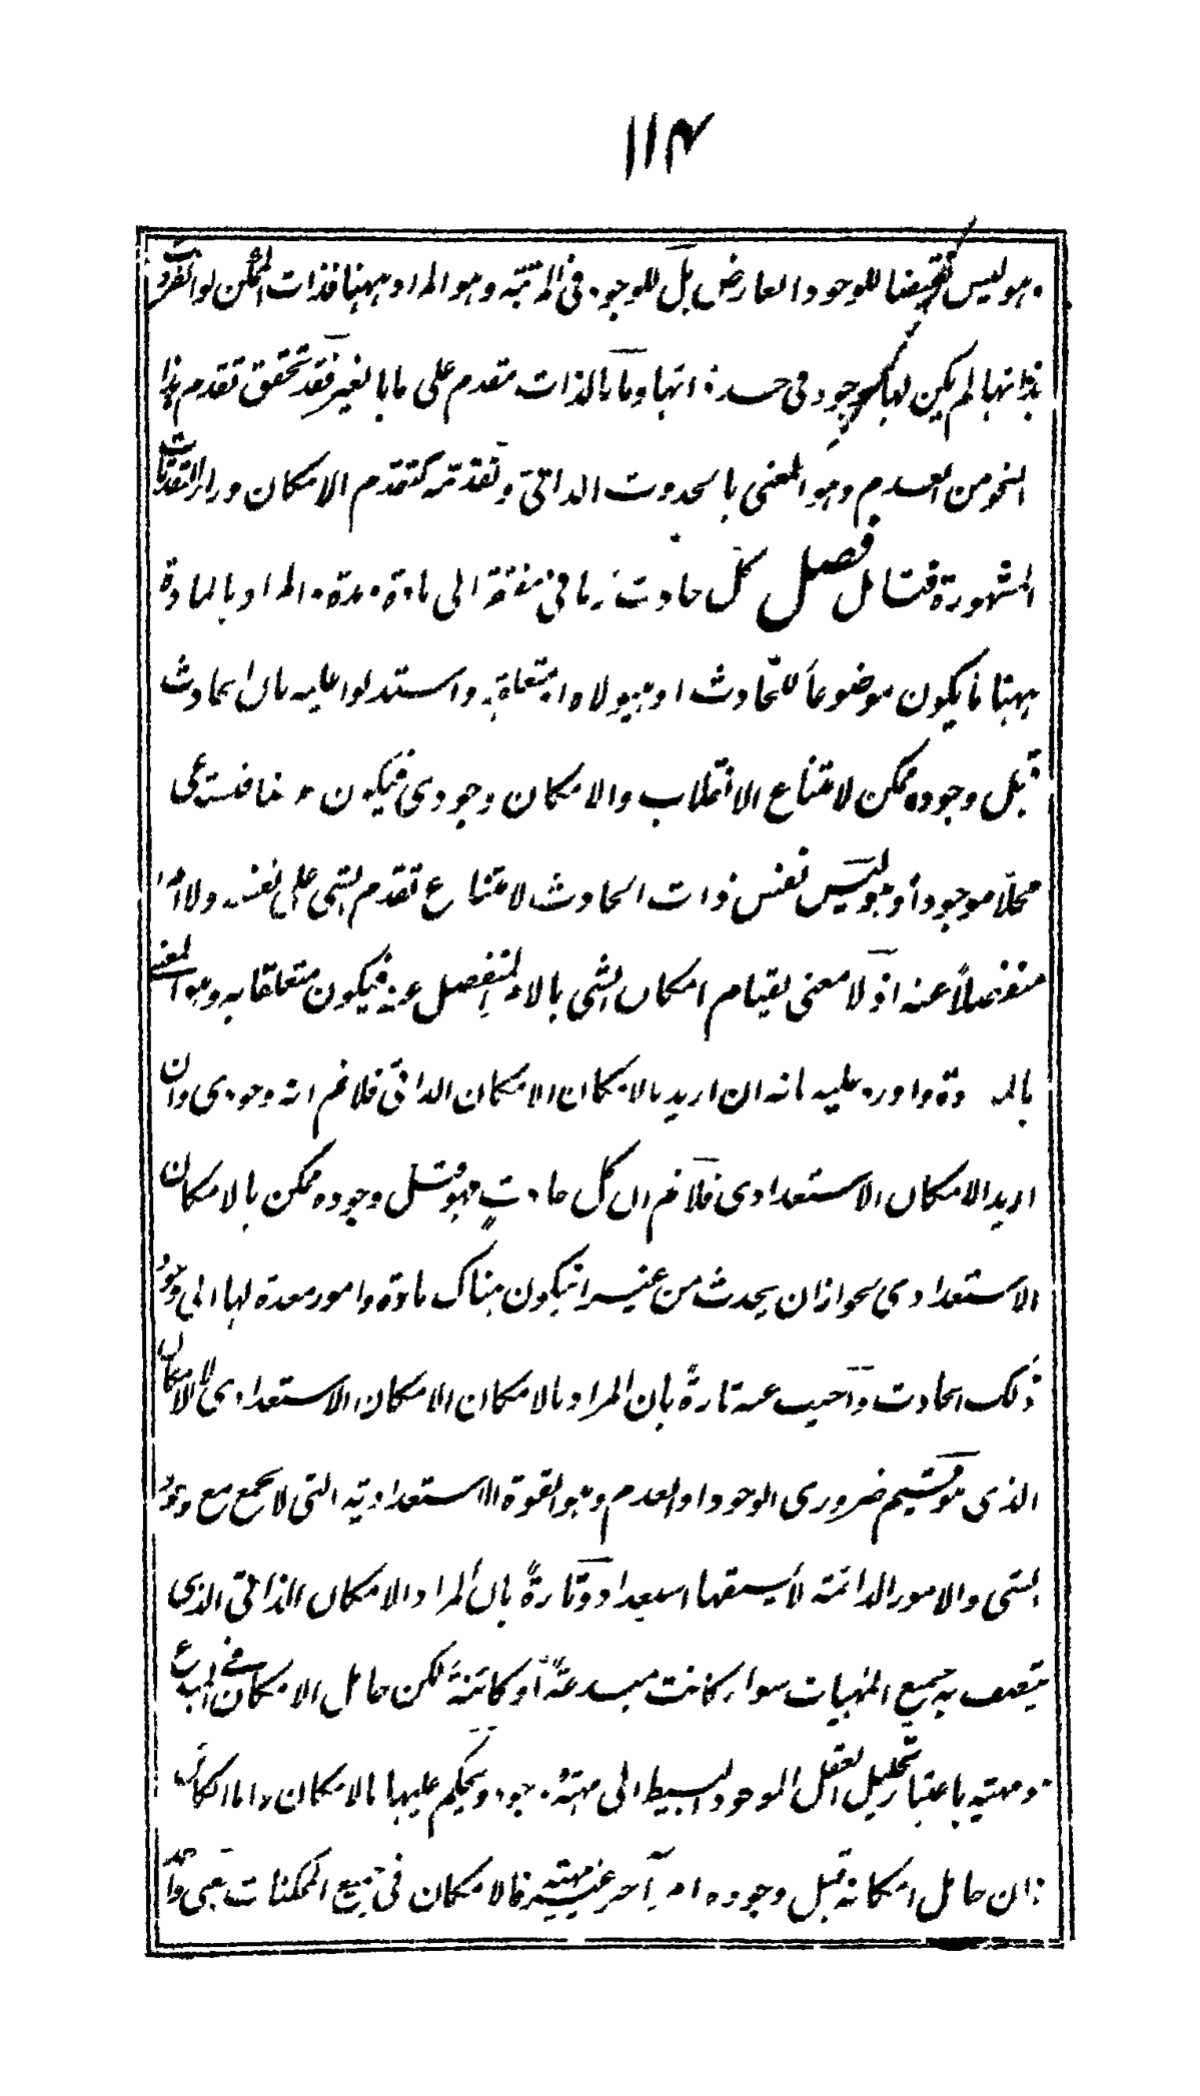 ١١٤
وهو ليس نقيضا للوجود العارض بل للوجود في المرتبة وهو المراد ههنا فذات الممكن لو انفردت
بذاتها لم يكن لها وجود في حد ذاتها وما بالذات متقدم على ما بالغير فقد تحقق تقدم هذا
النحو من العدم وهو المعنى بالحدوث الذاتي وتقدمه كتقدم الامكان وراء التقدمات
المشهورة فتامل فصل كل حادث زماني مفتقر الى مادة ومدة والمراد بالمادة
ههنا ما يكون موضوعاً للحادث او هيولاه او متعلقه واستدلوا عليه بان الحادث
قبل وجوده ممكن لامتناع الانقلاب والامكان وجودي فيكون وصفا فيستدعي
محلاً موجوداً وهو ليس نفس ذات الحادث لامتناع تقدم الشي على نفسه ولا امرا
منفصلاً عنه اذ لا معنى لقيام امكان الشي بالامر المنفصل عنه فيكون متعلقا به وهو المعنى
بالمادة واورد عليه بانه ان اريد بالامكان الامكان الذاتي فلا نم انه وجودي وان
اريد الامكان الاستعدادي فلا نم ان كل حادث فهو قبل وجوده ممكن بالامكان
الاستعدادي لجواز ان يحدث من غير ان يكون هناك مادة وامور معدة لها الى وجود
ذلك الحادث واجيب عنه تارةً بان المراد بالامكان الامكان الاستعدادي لا الامكان
الذي هو قسيم ضروري الوجود او العدم وهو القوة الاستعدادية التي لا تجمع مع وجود
الشي والامور الدائمة لا يسبقها استعداد وتارةً بان المراد الامكان الذاتي الذي
يتصف به جميع المهيات سواء كانت مبدعةً او كائنةً لكن حامل الامكان في المبدع
هو مهيته باعتبار تحليل العقل الموجود البسيط الى مهية ووجود ويحكم عليها بالامكان واما الكائن
فان حامل امكانه قبل وجوده امر آخر غير مهيته فالامكان في جميع الممكنات بمعنى واحد